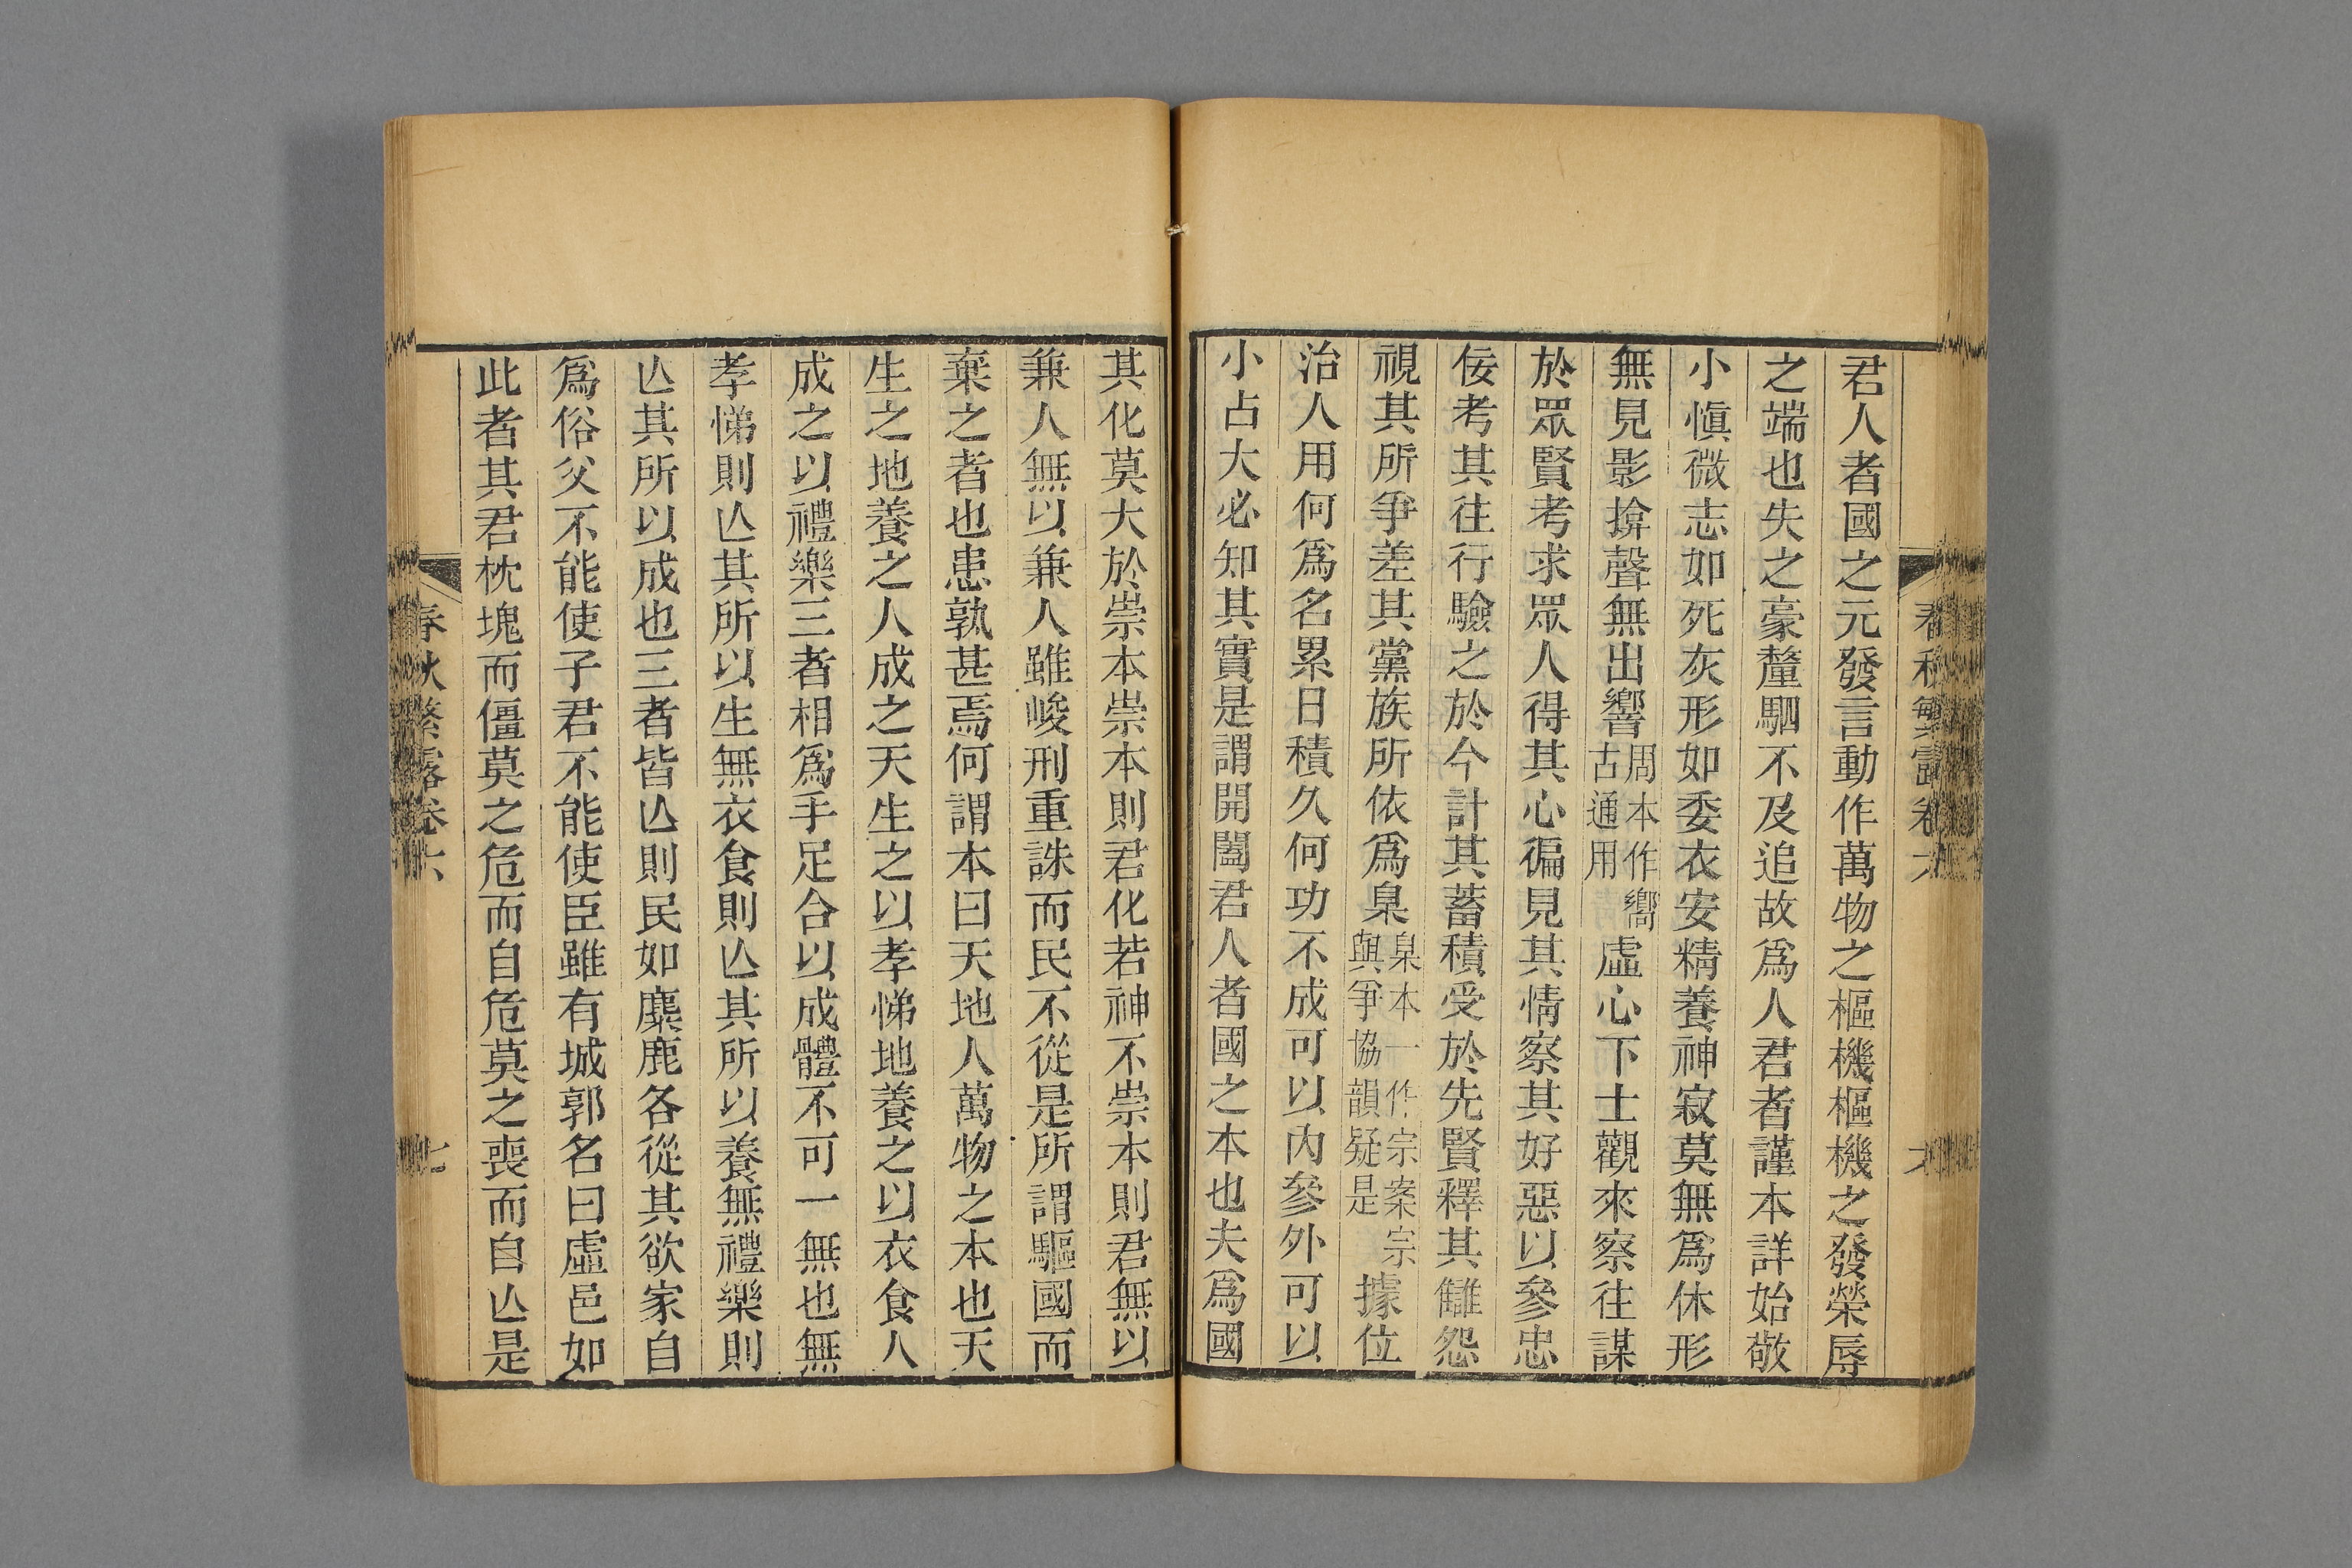 君人者國之元發言動作萬物之樞機樞機之發榮辱
之端也失之豪釐駟不及追故爲人君者謹本詳始敬
小愼微志如死灰形如委衣安精養神寂莫無爲休形
無見影揜聲無出響周本作嚮古通用虛心下士觀來察往謀
於眾賢考求眾人得其心徧見其情察其好惡以參忠
佞考其往行驗之於今計其蓄積受於先賢釋其讎怨
視其所爭差其黨族所依爲臬臬本一作宗案宗與爭協韻疑是據位
治人用何爲名累日積久何功不成可以內參外可以
小占大必知其實是謂開闔君人者國之本也夫爲國
其化莫大於崇本崇本則君化若神不崇本則君無以
兼人無以兼人雖峻刑重誅而民不從是所謂驅國而
棄之者也患孰甚焉何謂本曰天地人萬物之本也天
生之地養之人成之天生之以孝悌地養之以衣食人
成之以禮樂三者相爲手足合以成體不可一無也無
孝悌則亾其所以生無衣食則亾其所以養無禮樂則
亾其所以成也三者皆亾則民如麋鹿各從其欲家自
爲俗父不能使子君不能使臣雖有城郭名曰虛邑如
此者其君枕塊而僵莫之危而自危莫之喪而自亾是
春秋繁露卷六
七